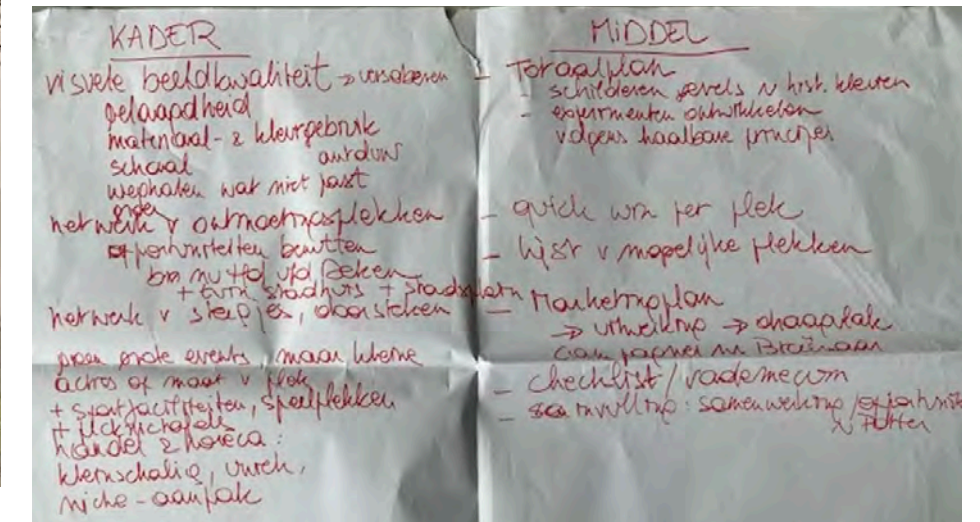 KADER
visuele beeldkwaliteit → versoberen
gelaagdheid
materiaal- & kleurgebruik
schaal
weghalen wat niet past
netwerk v ontmoetingsplekken
opportuniteiten benutten
+ tuin stadhuis + stadsplein
netwerk v steegjes, doorsteken
geen grote events, maar kleine
acties op maat v plek
+ sportfaciliteiten, speelplekken
+
handel & horeca:
kleinschalig, uniek,
niche-aanpak
MIDDEL
- Totaalplan
- schilderen gevels v hist. kleuren
- experimenten ontwikkelen
volgens haalbare principes
- quick win per plek
- lijst v mogelijke plekken
- Marketingplan
→ uitwerking →
- checklist / vademecum
- invulling: samenwerking